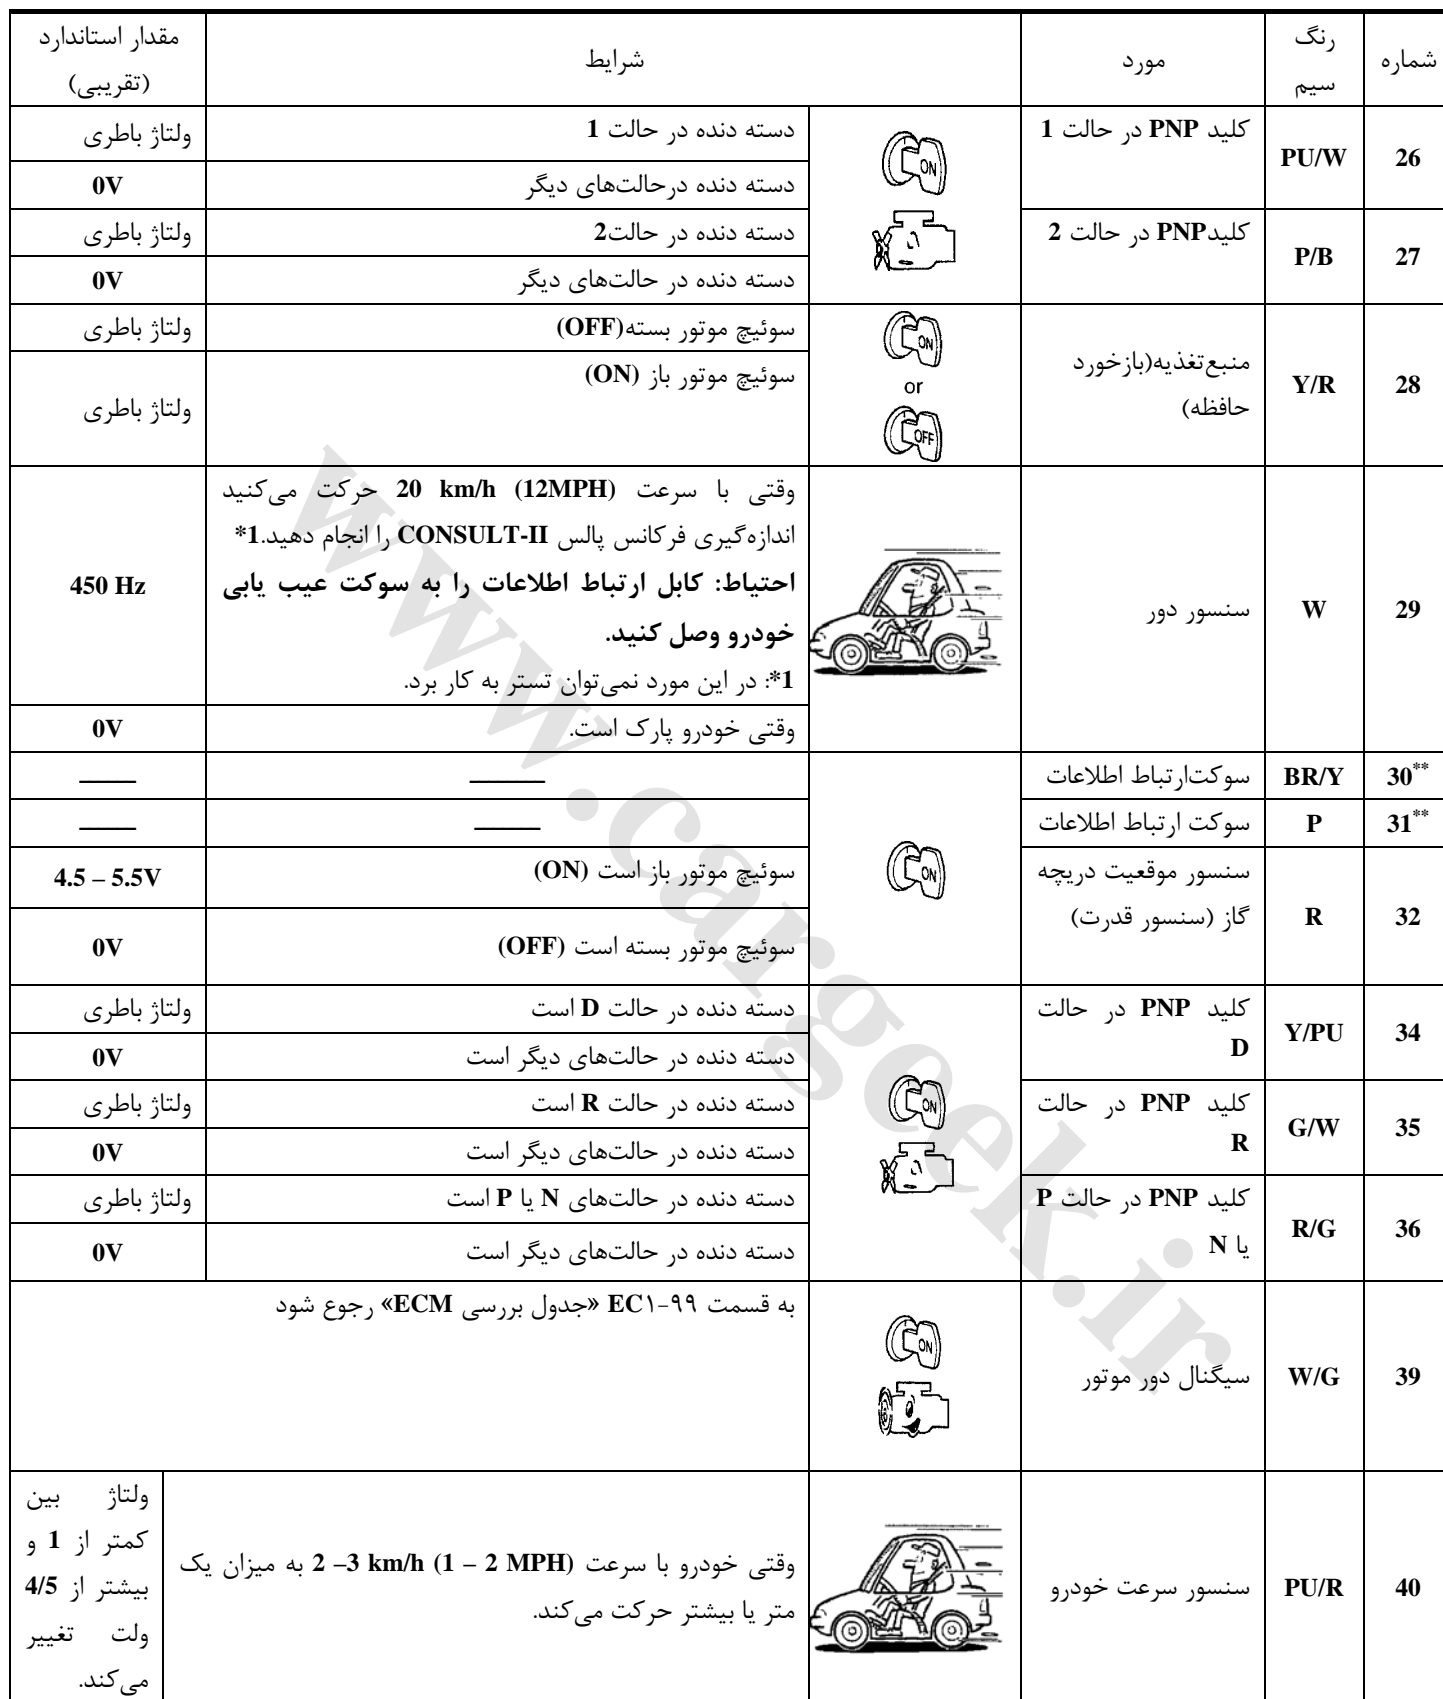 شماره
رنگ
سیم
مورد
شرایط
مقدار استاندارد
(تقریبی)
26
PU/W
کلید PNP در حالت 1
ON
دسته دنده در حالت 1
ولتاژ باطری
دسته دنده درحالت‌های دیگر
0V
27
P/B
کلیدPNP در حالت 2
دسته دنده در حالت2
ولتاژ باطری
دسته دنده در حالت‌های دیگر
0V
28
Y/R
منبع‌تغذیه(بازخورد
حافظه)
ON
or
OFF
سوئیچ موتور بسته(OFF)
ولتاژ باطری
سوئیچ موتور باز (ON)
ولتاژ باطری
29
W
سنسور دور
وقتی با سرعت 20 km/h (12MPH) حرکت می‌کنید
اندازه‌گیری فرکانس پالس CONSULT-II را انجام دهید.1*
احتیاط: کابل ارتباط اطلاعات را به سوکت عیب یابی
خودرو وصل کنید.
1*: در این مورد نمی‌توان تستر به کار برد.
450 Hz
وقتی خودرو پارک است.
0V
30**
BR/Y
سوکت‌ارتباط اطلاعات
ON
31**
P
سوکت ارتباط اطلاعات
32
R
سنسور موقعیت دریچه
گاز (سنسور قدرت)
سوئیچ موتور باز است (ON)
4.5 – 5.5V
سوئیچ موتور بسته است (OFF)
0V
34
Y/PU
کلید PNP در حالت
D
ON
دسته دنده در حالت D است
ولتاژ باطری
دسته دنده در حالت‌های دیگر است
0V
35
G/W
کلید PNP در حالت
R
دسته دنده در حالت R است
ولتاژ باطری
دسته دنده در حالت‌های دیگر است
0V
36
R/G
کلید PNP در حالت P
یا N
دسته دنده در حالت‌های N یا P است
ولتاژ باطری
دسته دنده در حالت‌های دیگر است
0V
39
W/G
سیگنال دور موتور
ON
به قسمت EC۱-۹۹ «جدول بررسی ECM» رجوع شود
40
PU/R
سنسور سرعت خودرو
وقتی خودرو با سرعت 2 –3 km/h (1 – 2 MPH) به میزان یک
متر یا بیشتر حرکت می‌کند.
ولتاژ بین
کمتر از 1 و
بیشتر از 4/5
ولت تغییر
می‌کند.
www.cargeek.ir